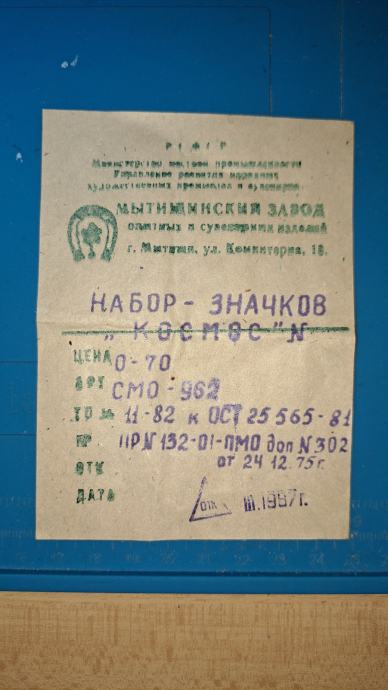 РСФСР
Министерство местной промышленности
Управление развития народных
художественных промыслов и сувениров
МЫТИЩИНСКИЙ ЗАВОД
опытных и сувенирных изделий
г. Мытищи, ул. Коминтерна, 18.
НАБОР - ЗНАЧКОВ
„КОСМОС" N
ЦЕНА 0-70
АРТ СМО - 962
ТО № 11-82 к ОСТ 25 565-81
ПР ПРN 132-01-ПМО доп N 302
от 24 12.75г.
ОТК
ДАТА ОТК III.1987г.